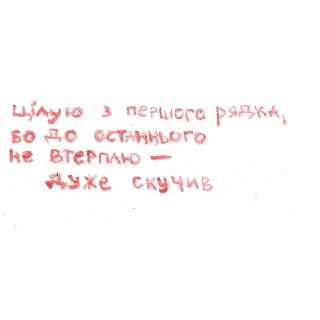 Цілую з першого рядка,
бо до останнього
не втерплю —
дуже скучив